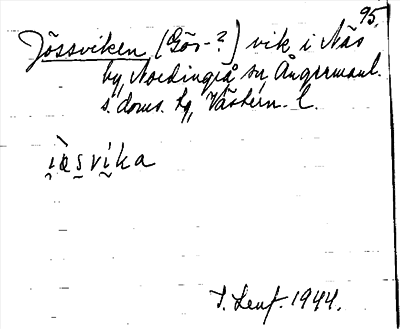 95.
Jössviken (Gös-?) vik i Näs
by, Nordingrå sn, Ångermanl.
s. doms. hg, Västern. l.
i̯ö̀s̱vi̯ka
I. Lenf. 1944.